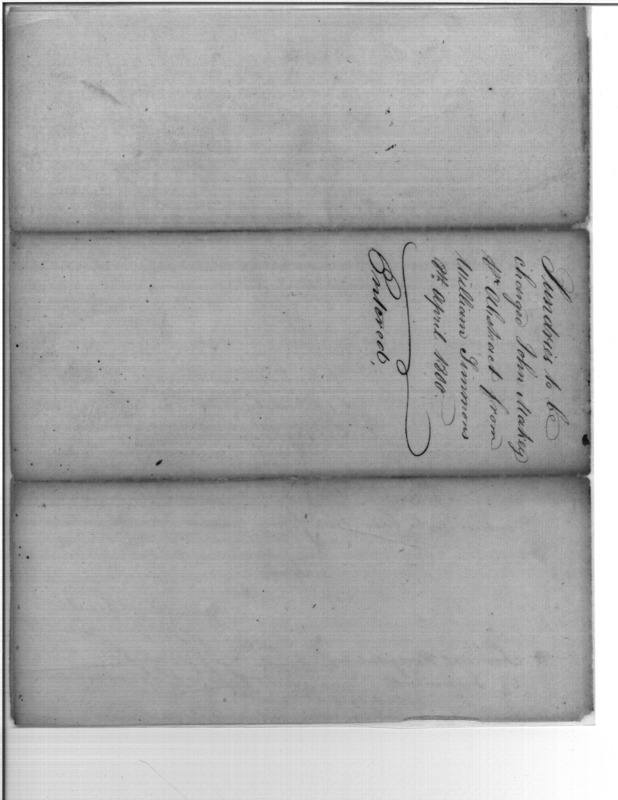 Sundries to be
charged John Mackey
Pr Abstract from
William Simmons
8th April 1800.
Entered.